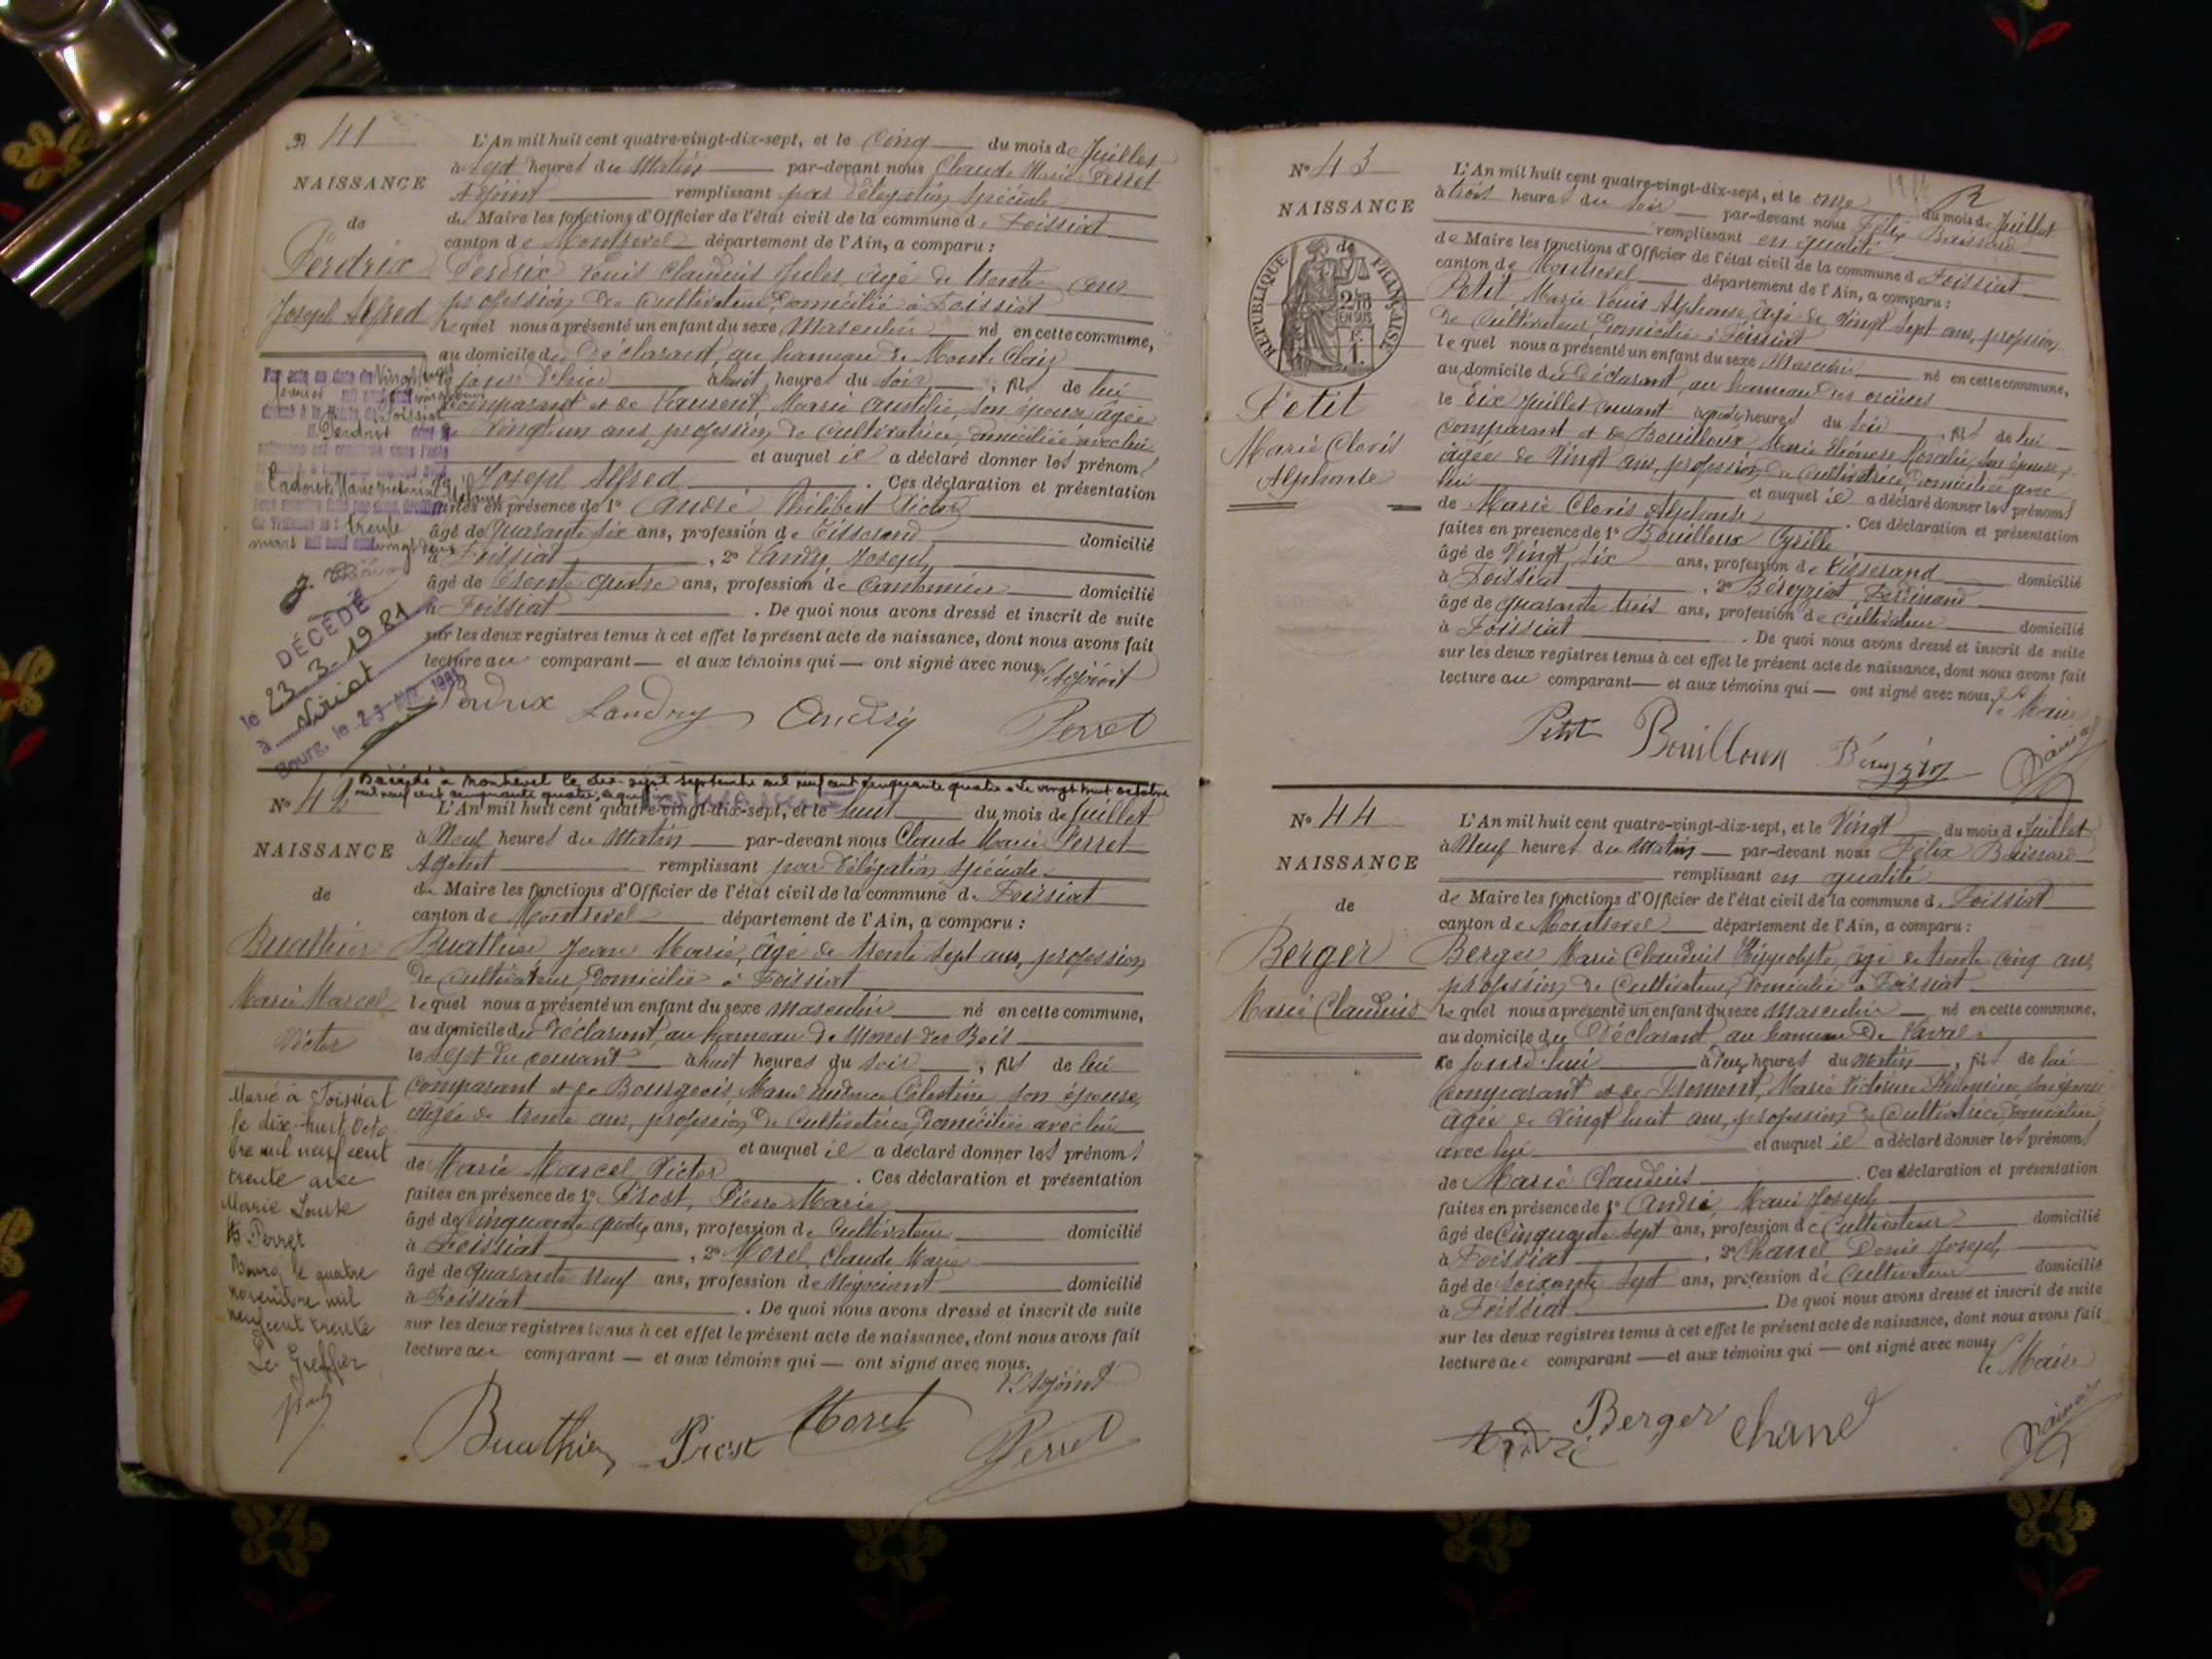 N° 41
NAISSANCE
de
Perdrix
Joseph Alfred
L'An mil huit cent quatre-vingt-dix-sept, et le Cinq du mois de Juillet
à Sept heures du Matin par-devant nous Claude Marie Perret
Adjoint remplissant par délégation spéciale
de Maire les fonctions d'Officier de l'état civil de la commune de Foissiat
canton de Montrevel département de l'Ain, a comparu :
Perdrix Louis Claudius Jules, âgé de trente ans
profession de Cultivateur, domicilié à Foissiat
lequel nous a présenté un enfant du sexe Masculin né en cette commune,
au domicile du Déclarant, au hameau de Mont Clair
le jour d'hier à huit heures du soir, fils de lui
comparant et de Laurent, Marie son épouse âgée
de Vingt un ans, profession de Cultivatrice, domiciliée avec lui
et auquel il a déclaré donner les prénoms
de Joseph Alfred. Ces déclaration et présentation
faites en présence de 1° André Philibert Victor
âgé de quarante six ans, profession de Tisserand domicilié
à Foissiat, 2° Landry Joseph
âgé de trente quatre ans, profession de Cantonnier domicilié
à Foissiat. De quoi nous avons dressé et inscrit de suite
sur les deux registres tenus à cet effet le présent acte de naissance, dont nous avons fait
lecture au comparant et aux témoins qui ont signé avec nous.
L'Adjoint
Perdrix Landry André Perret
DÉCÉDÉ
le 23-3-1981
à Viriat
Bourg, le
N° 42
Décédé à Montrevel le dix-sept septembre mil neuf cent cinquante quatre. Le vingt huit octobre
mil neuf cent cinquante quatre
NAISSANCE
de
Buathier
Marie Marcel
Victor
Marié à Foissiat
le dix-huit octo-
bre mil neuf cent
trente avec
Marie Louise
Perret
Bourg le quatre
novembre mil
neuf cent trente
Le Greffier
L'An mil huit cent quatre-vingt-dix-sept, et le huit du mois de Juillet
à Neuf heures du Matin par-devant nous Claude Marie Perret
Adjoint remplissant par délégation spéciale
de Maire les fonctions d'Officier de l'état civil de la commune de Foissiat
canton de Montrevel département de l'Ain, a comparu :
Buathier Jean Marie, âgé de trente sept ans, profession
de Cultivateur, domicilié à Foissiat
lequel nous a présenté un enfant du sexe masculin né en cette commune,
au domicile du Déclarant, au hameau de des Bois
le sept du courant à huit heures du soir, fils de lui
comparant et de Bourgeois, Marie Célestine son épouse,
âgée de trente ans, profession de Cultivatrice, domiciliée avec lui
et auquel il a déclaré donner les prénoms
de Marie Marcel Victor. Ces déclaration et présentation
faites en présence de 1° Prost, Pierre Marie
âgé de Cinquante quatre ans, profession de Cultivateur domicilié
à Foissiat, 2° Morel, Claude Marie
âgé de quarante Neuf ans, profession de Négociant domicilié
à Foissiat. De quoi nous avons dressé et inscrit de suite
sur les deux registres tenus à cet effet le présent acte de naissance, dont nous avons fait
lecture au comparant — et aux témoins qui — ont signé avec nous.
L'Adjoint
Buathier Prost Morel Perret
N° 43
NAISSANCE
de
RÉPUBLIQUE FRANÇAISE
Petit
Marie Clovis
Alphonse
L'An mil huit cent quatre-vingt-dix-sept, et le onze du mois de Juillet
à trois heures du soir par-devant nous Félix
remplissant en qualité
de Maire les fonctions d'Officier de l'état civil de la commune de Foissiat
canton de Montrevel département de l'Ain, a comparu :
Petit Marie Louis Alphonse âgé de Vingt Sept ans, profession
de Cultivateur, domicilié à Foissiat
lequel nous a présenté un enfant du sexe Masculin né en cette commune,
au domicile du Déclarant, au hameau des
le Dix Juillet Courant à heures du soir, fils de lui
comparant et de Bouilloux Marie Rosalie, son épouse,
âgée de Vingt ans, profession de Cultivatrice, domiciliée avec
lui et auquel il a déclaré donner les prénoms
de Marie Clovis Alphonse. Ces déclaration et présentation
faites en présence de 1° Bouilloux Cyrille
âgé de Vingt six ans, profession de Tisserand domicilié
à Foissiat, 2° Béreyziat Ferdinand
âgé de quarante trois ans, profession de Cultivateur domicilié
à Foissiat. De quoi nous avons dressé et inscrit de suite
sur les deux registres tenus à cet effet le présent acte de naissance, dont nous avons fait
lecture au comparant — et aux témoins qui — ont signé avec nous,
Le Maire
Petit Bouilloux
N° 44
NAISSANCE
de
Berger
Marie Claudius
L'An mil huit cent quatre-vingt-dix-sept, et le Vingt du mois de Juillet
à Neuf heures du Matin — par-devant nous Félix
remplissant en qualité
de Maire les fonctions d'Officier de l'état civil de la commune de Foissiat
canton de Montrevel département de l'Ain, a comparu :
Berger Marie Claudius Hippolyte, âgé de trente cinq ans,
profession de Cultivateur, domicilié à Foissiat
lequel nous a présenté un enfant du sexe Masculin né en cette commune,
au domicile du Déclarant au hameau de Laval
ce jourd'hui à Deux heures du Matin, fils de lui
comparant et de Fromont, Marie Victorine son épouse
âgée de Vingt huit ans, profession de Cultivatrice, domiciliée
avec lui et auquel il a déclaré donner les prénoms
de Marie Claudius. Ces déclaration et présentation
faites en présence de 1° André, Marie Joseph
âgé de Cinquante sept ans, profession de Cultivateur domicilié
à Foissiat, 2° Chanel Denis Joseph
âgé de soixante sept ans, profession de Cultivateur domicilié
à Foissiat De quoi nous avons dressé et inscrit de suite
sur les deux registres tenus à cet effet le présent acte de naissance, dont nous avons fait
lecture au comparant — et aux témoins qui — ont signé avec nous,
le Maire
André Berger Chanel